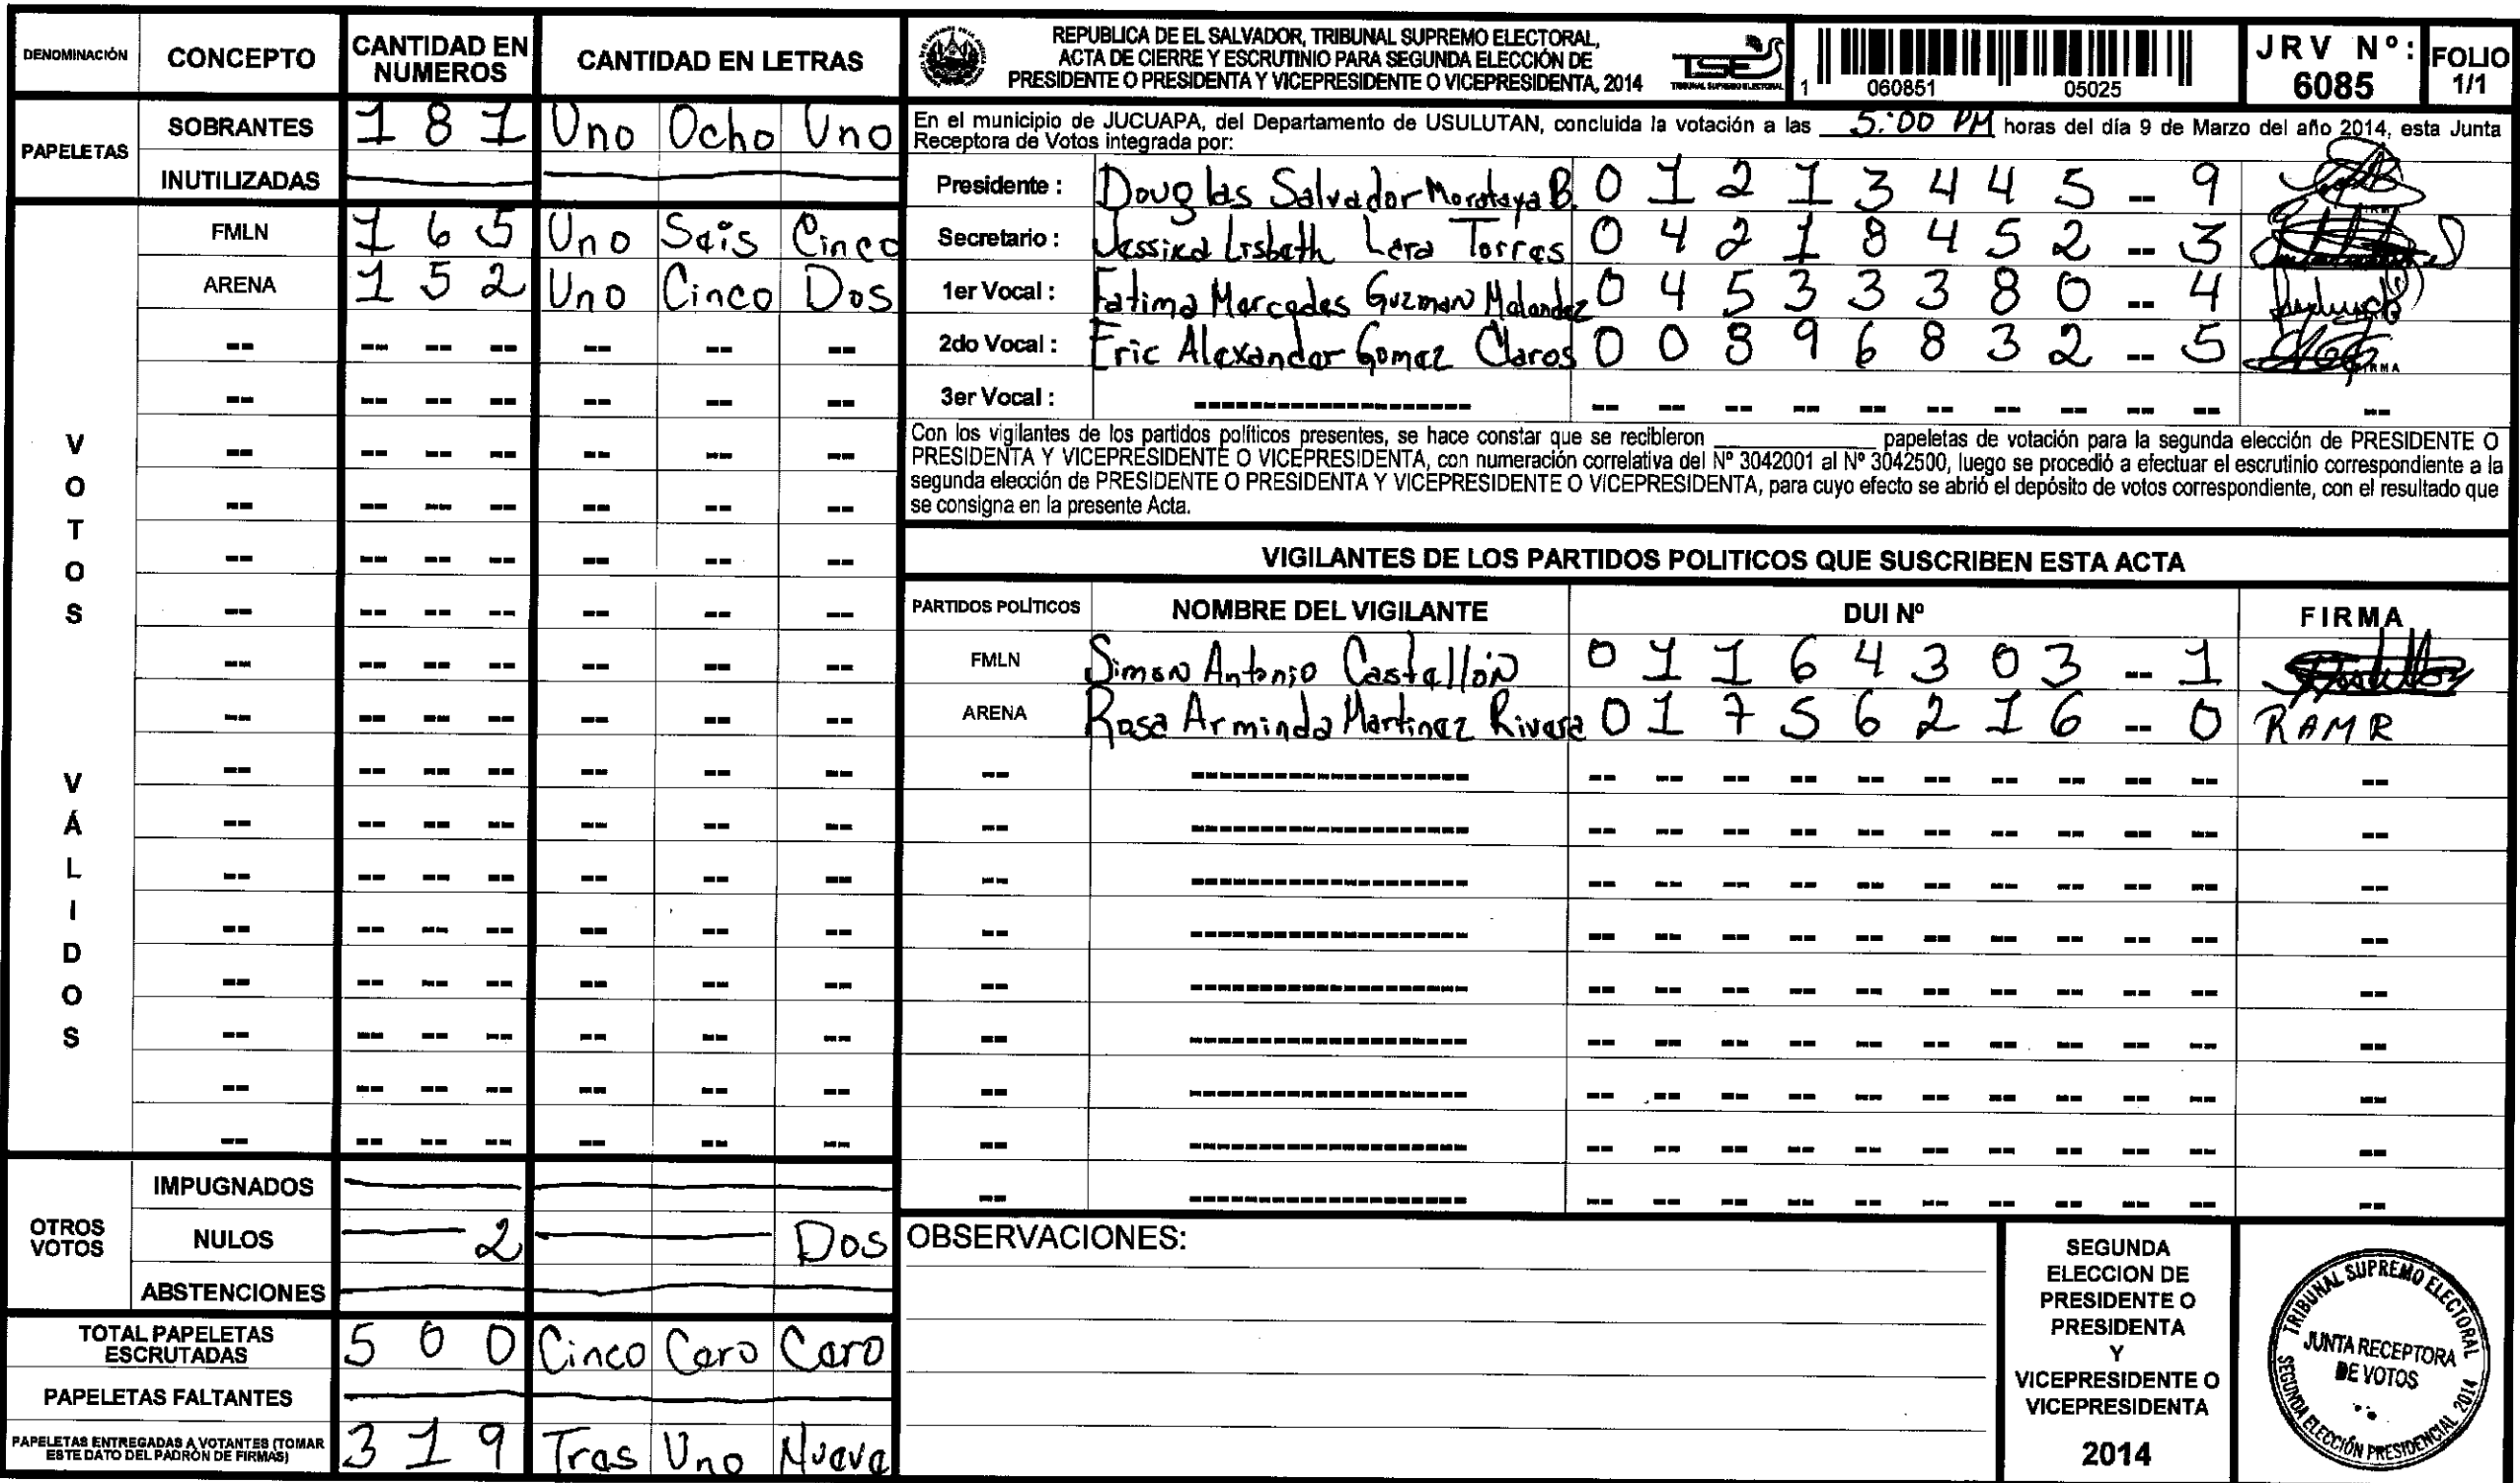 DENOMINACIÓN CONCEPTO CANTIDAD EN NUMEROS CANTIDAD EN LETRAS
PAPELETAS
SOBRANTES 1 8 1 Uno Ocho Uno
INUTILIZADAS
VOTOS VÁLIDOS
FMLN 1 6 5 Uno Seis Cinco
ARENA 1 5 2 Uno Cinco Dos
OTROS VOTOS
IMPUGNADOS
NULOS 2 Dos
ABSTENCIONES
TOTAL PAPELETAS ESCRUTADAS 5 0 0 Cinco Cero Cero
PAPELETAS FALTANTES
PAPELETAS ENTREGADAS A VOTANTES (TOMAR ESTE DATO DEL PADRÓN DE FIRMAS) 3 1 9 Tres Uno Nueve
REPUBLICA DE EL SALVADOR, TRIBUNAL SUPREMO ELECTORAL,
ACTA DE CIERRE Y ESCRUTINIO PARA SEGUNDA ELECCIÓN DE
PRESIDENTE O PRESIDENTA Y VICEPRESIDENTE O VICEPRESIDENTA, 2014
TSE
TRIBUNAL SUPREMO ELECTORAL
1 060851 05025
JRV Nº: 6085
FOLIO 1/1
En el municipio de JUCUAPA, del Departamento de USULUTAN, concluida la votación a las 5:00 PM horas del día 9 de Marzo del año 2014, esta Junta
Receptora de Votos integrada por:
Presidente : Douglas Salvador Morataya B. 0 1 2 1 3 4 4 5 -- 9
Secretario : Jessika Lisbeth Lera Torres 0 4 2 1 8 4 5 2 -- 3
1er Vocal : Fatima Mercedes Guzman Melendez 0 4 5 3 3 3 8 0 -- 4
2do Vocal : Eric Alexander Gomez Claros 0 0 8 9 6 8 3 2 -- 5
3er Vocal :
Con los vigilantes de los partidos políticos presentes, se hace constar que se recibieron ____________ papeletas de votación para la segunda elección de PRESIDENTE O
PRESIDENTA Y VICEPRESIDENTE O VICEPRESIDENTA, con numeración correlativa del Nº 3042001 al Nº 3042500, luego se procedió a efectuar el escrutinio correspondiente a la
segunda elección de PRESIDENTE O PRESIDENTA Y VICEPRESIDENTE O VICEPRESIDENTA, para cuyo efecto se abrió el depósito de votos correspondiente, con el resultado que
se consigna en la presente Acta.
VIGILANTES DE LOS PARTIDOS POLITICOS QUE SUSCRIBEN ESTA ACTA
PARTIDOS POLÍTICOS NOMBRE DEL VIGILANTE DUI Nº FIRMA
FMLN Simon Antonio Castellón 0 1 1 6 4 3 0 3 -- 1
ARENA Rosa Arminda Martinez Rivera 0 1 7 5 6 2 1 6 -- 0 RAMR
OBSERVACIONES:
SEGUNDA
ELECCION DE
PRESIDENTE O
PRESIDENTA
Y
VICEPRESIDENTE O
VICEPRESIDENTA
2014
TRIBUNAL SUPREMO ELECTORAL
JUNTA RECEPTORA
DE VOTOS
SEGUNDA ELECCIÓN PRESIDENCIAL 2014